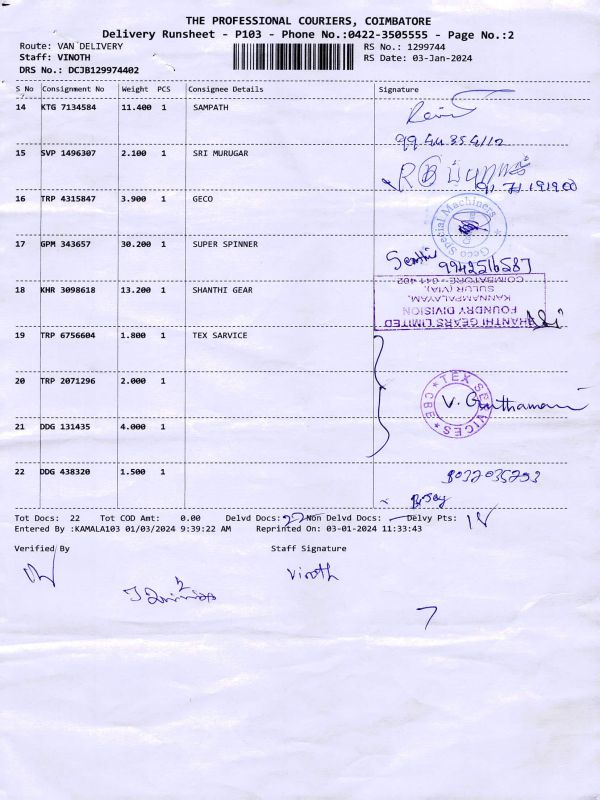 THE PROFESSIONAL COURIERS, COIMBATORE
Delivery Runsheet - P103 - Phone No.:0422-3505555 - Page No.:2
Route: VAN DELIVERY RS No.: 1299744
Staff: VINOTH RS Date: 03-Jan-2024
DRS No.: DCJB129974402
S No Consignment No Weight PCS Consignee Details Signature
14 KTG 7134584 11.400 1 SAMPATH
15 SVP 1496307 2.100 1 SRI MURUGAR
16 TRP 4315847 3.900 1 GECO
Geco Special Machiners
17 GPM 343657 30.200 1 SUPER SPINNER
9942516587
18 KHR 3098618 13.200 1 SHANTHI GEAR
SHANTHI GEARS LIMITED
FOUNDRY DIVISION
KANNAMPALAYAM,
SULUR (VIA),
COIMBATORE - 641 402
19 TRP 6756604 1.800 1 TEX SARVICE
20 TRP 2071296 2.000 1
TEX SERVICES CBE
21 DDG 131435 4.000 1
22 DDG 438320 1.500 1
Tot Docs: 22 Tot COD Amt: 0.00 Delvd Docs: 22 Non Delvd Docs: — Delvy Pts:
Entered By :KAMALA103 01/03/2024 9:39:22 AM Reprinted On: 03-01-2024 11:33:43
Verified By Staff Signature
Vinoth
7